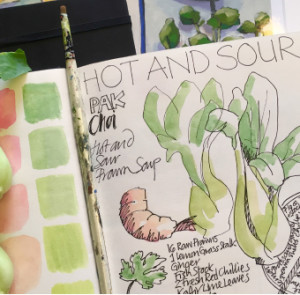 HOT AND SOUR
PAK
Choi
Hot and
Sour
Prawn Soup
1kg Raw Prawns
1 Lemon Grass Stalk
Ginger
Fish Stock
2 Fresh Red Chillies
Lime Leaves